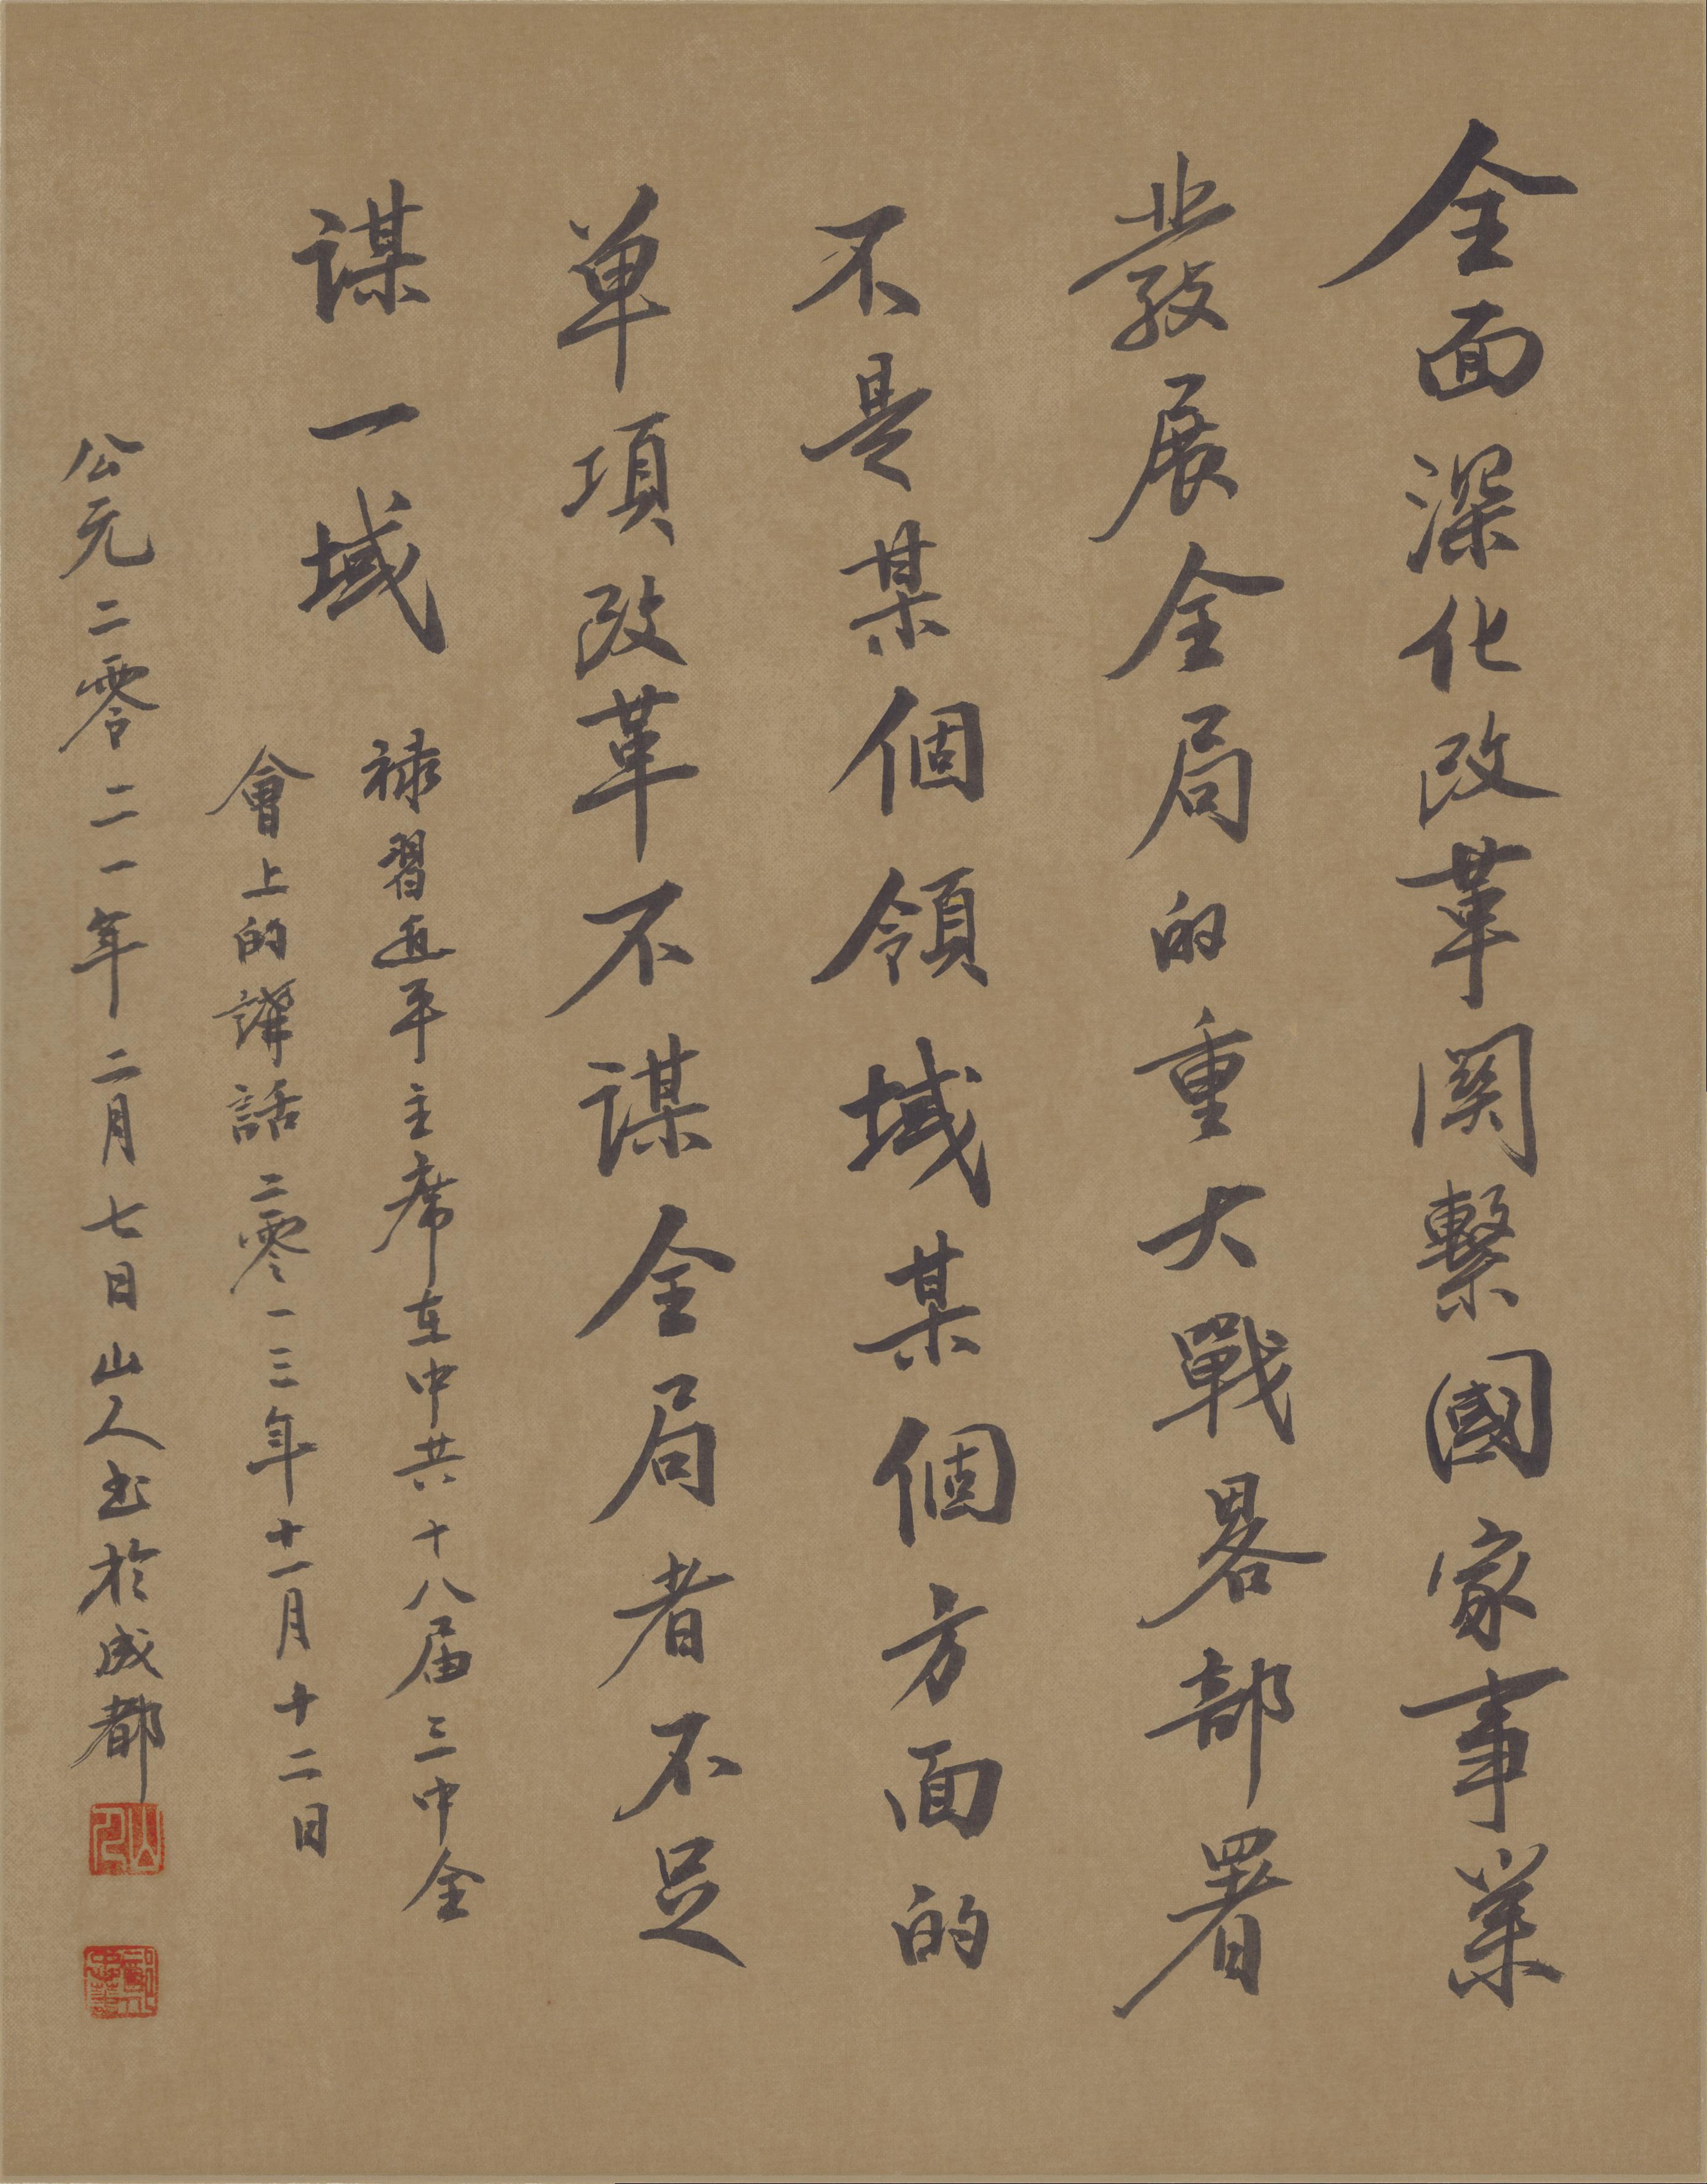 全面深化改革関繫國家事業
發展全局的重大戰畧部署
不是某個領域某個方面的
单項改革不謀全局者不足
謀一域
禄習近平主席在中共十八届三中全
會上的講話二零一三年十一月十二日
公元二零二一年二月七日山人书於成都
山人